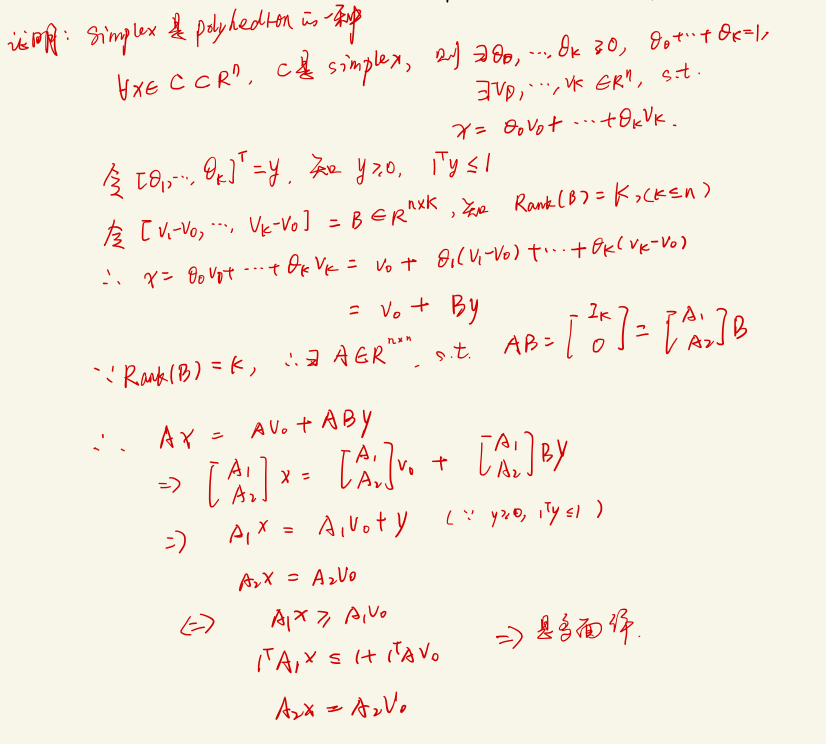 证明: simplex 是 polyhedron 的一种
∀x∈ C ⊂ Rⁿ, C是 simplex, 则 ∃θ₀, ⋯, θₖ ≥0, θ₀+⋯+θₖ=1,
∃v₀, ⋯, vₖ ∈Rⁿ, s.t.
x = θ₀v₀ + ⋯ + θₖvₖ.
令 [θ₁, ⋯, θₖ]ᵀ = y, 知 y≥0, 1ᵀy ≤ 1
令 [v₁-v₀, ⋯, vₖ-v₀] = B ∈ Rⁿˣᵏ, 知 Rank(B) = K, (K≤n)
∴ x = θ₀v₀ + ⋯ + θₖvₖ = v₀ + θ₁(v₁-v₀) + ⋯ + θₖ(vₖ-v₀)
= v₀ + By
∵ Rank(B) = K, ∴ ∃ A∈Rⁿˣⁿ, s.t. AB = [Iₖ; 0] = [A₁; A₂]B
∴ Ax = Av₀ + ABy
=> [A₁; A₂] x = [A₁; A₂] v₀ + [A₁; A₂] By
=> A₁x = A₁v₀ + y (∵ y≥0, 1ᵀy ≤ 1)
A₂x = A₂v₀
<=> A₁x ≥ A₁v₀
1ᵀA₁x ≤ 1 + 1ᵀAv₀ => 是多面体.
A₂x = A₂v₀